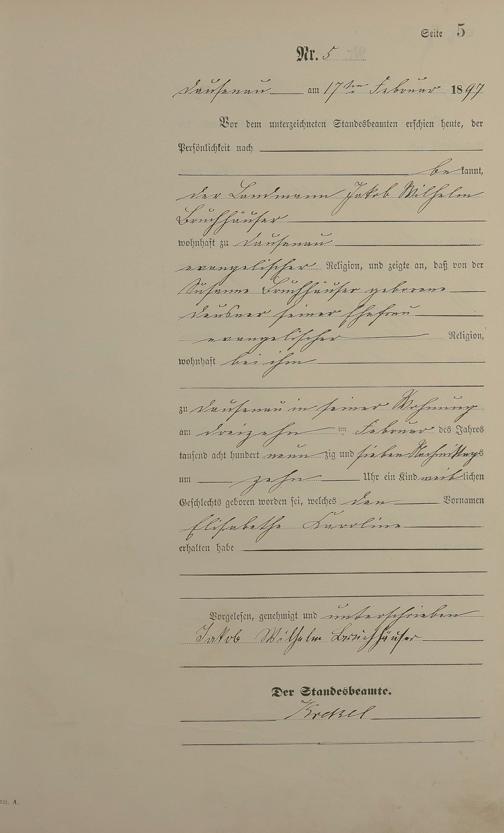 Seite 5
Nr. 5
Dausenau am 17ten Februar 1897
Vor dem unterzeichneten Standesbeamten erschien heute, der
Persönlichkeit nach
be kannt,
der Landmann Jakob Wilhelm
Bruchhäuser
wohnhaft zu Dausenau
evangelischer Religion, und zeigte an, daß von der
Susanne Bruchhäuser geborene
seiner Ehefrau
evangelischer Religion,
wohnhaft bei ihm
zu Dausenau in seiner Wohnung
am dreizehn ten Februar des Jahres
tausend acht hundert neun zig und sieben Nachmittags
um zehn Uhr ein Kind weib lichen
Geschlechts geboren worden sei, welches den Vornamen
Elisabethe Karoline
erhalten habe
Vorgelesen, genehmigt und unterschrieben
Jakob Wilhelm Bruchhäuser
Der Standesbeamte.